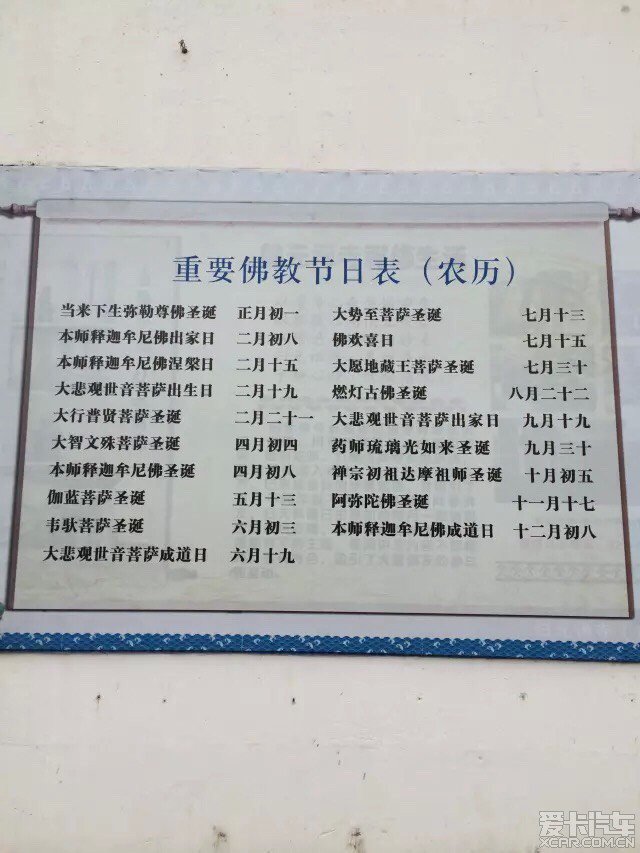 重要佛教节日表（农历）
当来下生弥勒尊佛圣诞 正月初一
本师释迦牟尼佛出家日 二月初八
本师释迦牟尼佛涅槃日 二月十五
大悲观世音菩萨出生日 二月十九
大行普贤菩萨圣诞 二月二十一
大智文殊菩萨圣诞 四月初四
本师释迦牟尼佛圣诞 四月初八
伽蓝菩萨圣诞 五月十三
韦驮菩萨圣诞 六月初三
大悲观世音菩萨成道日 六月十九
大势至菩萨圣诞 七月十三
佛欢喜日 七月十五
大愿地藏王菩萨圣诞 七月三十
燃灯古佛圣诞 八月二十二
大悲观世音菩萨出家日 九月十九
药师琉璃光如来圣诞 九月三十
禅宗初祖达摩祖师圣诞 十月初五
阿弥陀佛圣诞 十一月十七
本师释迦牟尼佛成道日 十二月初八
爱卡汽车
XCAR.COM.CN